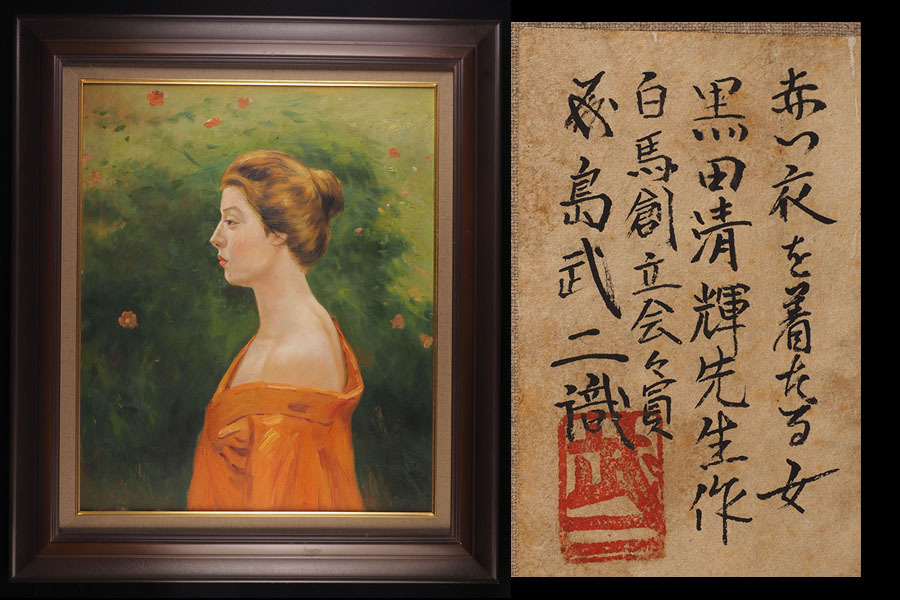 赤い衣を着たる女
黒田清輝先生作
白馬創立会々員
藤島武二識
武二